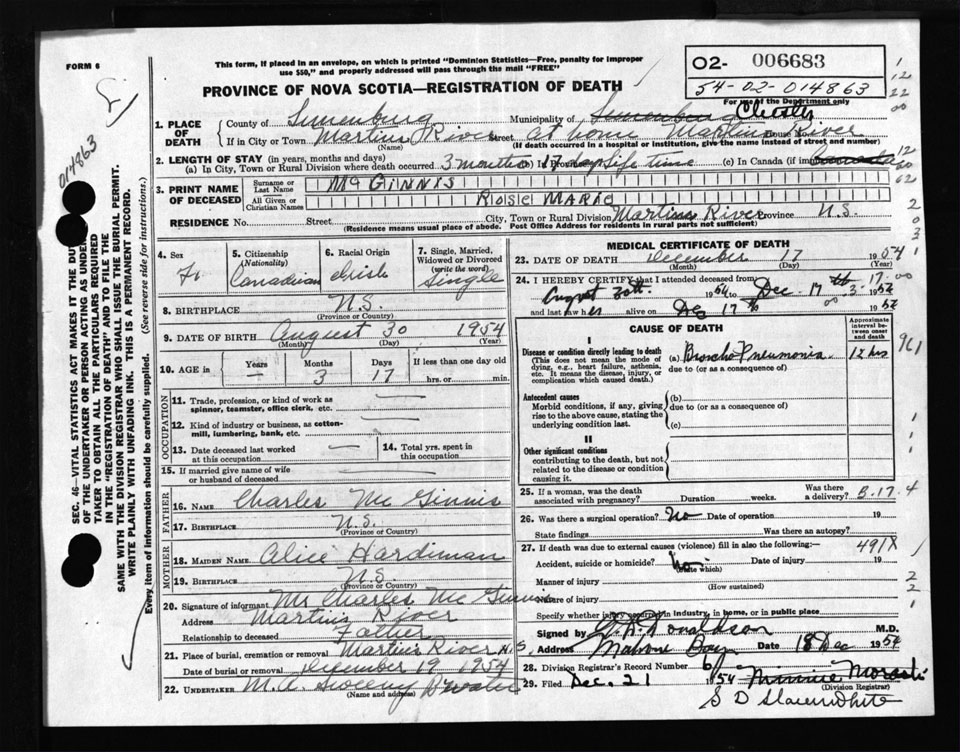 FORM 6
This form, if placed in an envelope, on which is printed "Dominion Statistics—Free, penalty for improper
use $50," and properly addressed will pass through the mail "FREE"
O2- 006683
54-02-014863
For use of the Department only
PROVINCE OF NOVA SCOTIA—REGISTRATION OF DEATH
014863
1. PLACE OF DEATH County of Lunenburg Municipality of Lunenburg Chester
If in City or Town Martins River Street at home Martins River House No.
(Name) (If death occurred in a hospital or institution, give the name instead of street and number)
2. LENGTH OF STAY (in years, months and days)
(a) In City, Town or Rural Division where death occurred 3 months 17 days (b) In Province Life time (c) In Canada (if immigrant)
3. PRINT NAME OF DECEASED Surname or Last Name McGINNIS
All Given or Christian Names ROSIE MARIE
RESIDENCE No. Street City, Town or Rural Division Martins River Province N.S.
(Residence means usual place of abode. Post Office Address for residents in rural parts not sufficient)
4. Sex F.
5. Citizenship (Nationality) Canadian
6. Racial Origin Irish
7. Single, Married, Widowed or Divorced (write the word) Single
8. BIRTHPLACE N.S.
(Province or Country)
9. DATE OF BIRTH August 30 1954
(Month) (Day) (Year)
10. AGE in Years — Months 3 Days 17 If less than one day hrs. or min.
OCCUPATION
11. Trade, profession, or kind of work as spinner, teamster, office clerk, etc. —
12. Kind of industry or business, as cotton-mill, lumbering, bank, etc. —
13. Date deceased last worked at this occupation —
14. Total yrs. spent in this occupation —
15. If married give name of wife or husband of deceased —
FATHER
16. NAME Charles Mc Ginnis
17. BIRTHPLACE N.S.
(Province or Country)
MOTHER
18. MAIDEN NAME Alice Hardiman
19. BIRTHPLACE N.S.
(Province or Country)
20. Signature of informant Mr Charles Mc Ginnis
Address Martins River
Relationship to deceased Father
21. Place of burial, cremation or removal Martins River N.S
Date of burial or removal December 19 1954
22. UNDERTAKER M.A. Sweeny B'water
(Name and address)
MEDICAL CERTIFICATE OF DEATH
23. DATE OF DEATH December 17 1954
(Month) (Day) (Year)
24. I HEREBY CERTIFY that I attended deceased from
August 30th 1954 to Dec. 17 1954
and last saw her alive on Dec 17th 1954
CAUSE OF DEATH
Approximate interval between onset and death
I
Disease or condition directly leading to death (a) Broncho Pneumonia 12 hrs
(This does not mean the mode of dying, e.g., heart failure, asthenia, etc. It means the disease, injury, or complication which caused death.)
due to (or as a consequence of)
Antecedent causes (b)
Morbid conditions, if any, giving rise to the above cause, stating the underlying condition last.
due to (or as a consequence of)
(c)
II
Other significant conditions contributing to the death, but not related to the disease or condition causing it.
25. If a woman, was the death associated with pregnancy? Duration weeks. Was there a delivery? B.17.4
26. Was there a surgical operation? No Date of operation 19
State findings Was there an autopsy?
27. If death was due to external causes (violence) fill in also the following:— 491X
Accident, suicide or homicide? No Date of injury 19
(State which)
Manner of injury
(How sustained)
Nature of injury
Specify whether injury occurred in industry, in home, or in public place
Signed by Donaldson M.D.
Address Mahone Bay Date 18 Dec 1954
28. Division Registrar's Record Number 6
29. Filed Dec. 21 1954 Minnie
(Division Registrar)
S D Slauenwhite
SEC. 46—VITAL STATISTICS ACT MAKES IT THE DUTY
OF THE UNDERTAKER OR PERSON ACTING AS UNDER-
TAKER TO OBTAIN ALL THE PARTICULARS REQUIRED
IN THE "REGISTRATION OF DEATH" AND TO FILE THE
SAME WITH THE DIVISION REGISTRAR WHO SHALL ISSUE THE BURIAL PERMIT.
WRITE PLAINLY WITH UNFADING INK. THIS IS A PERMANENT RECORD.
Every item of information should be carefully supplied. (See reverse side for instructions.)